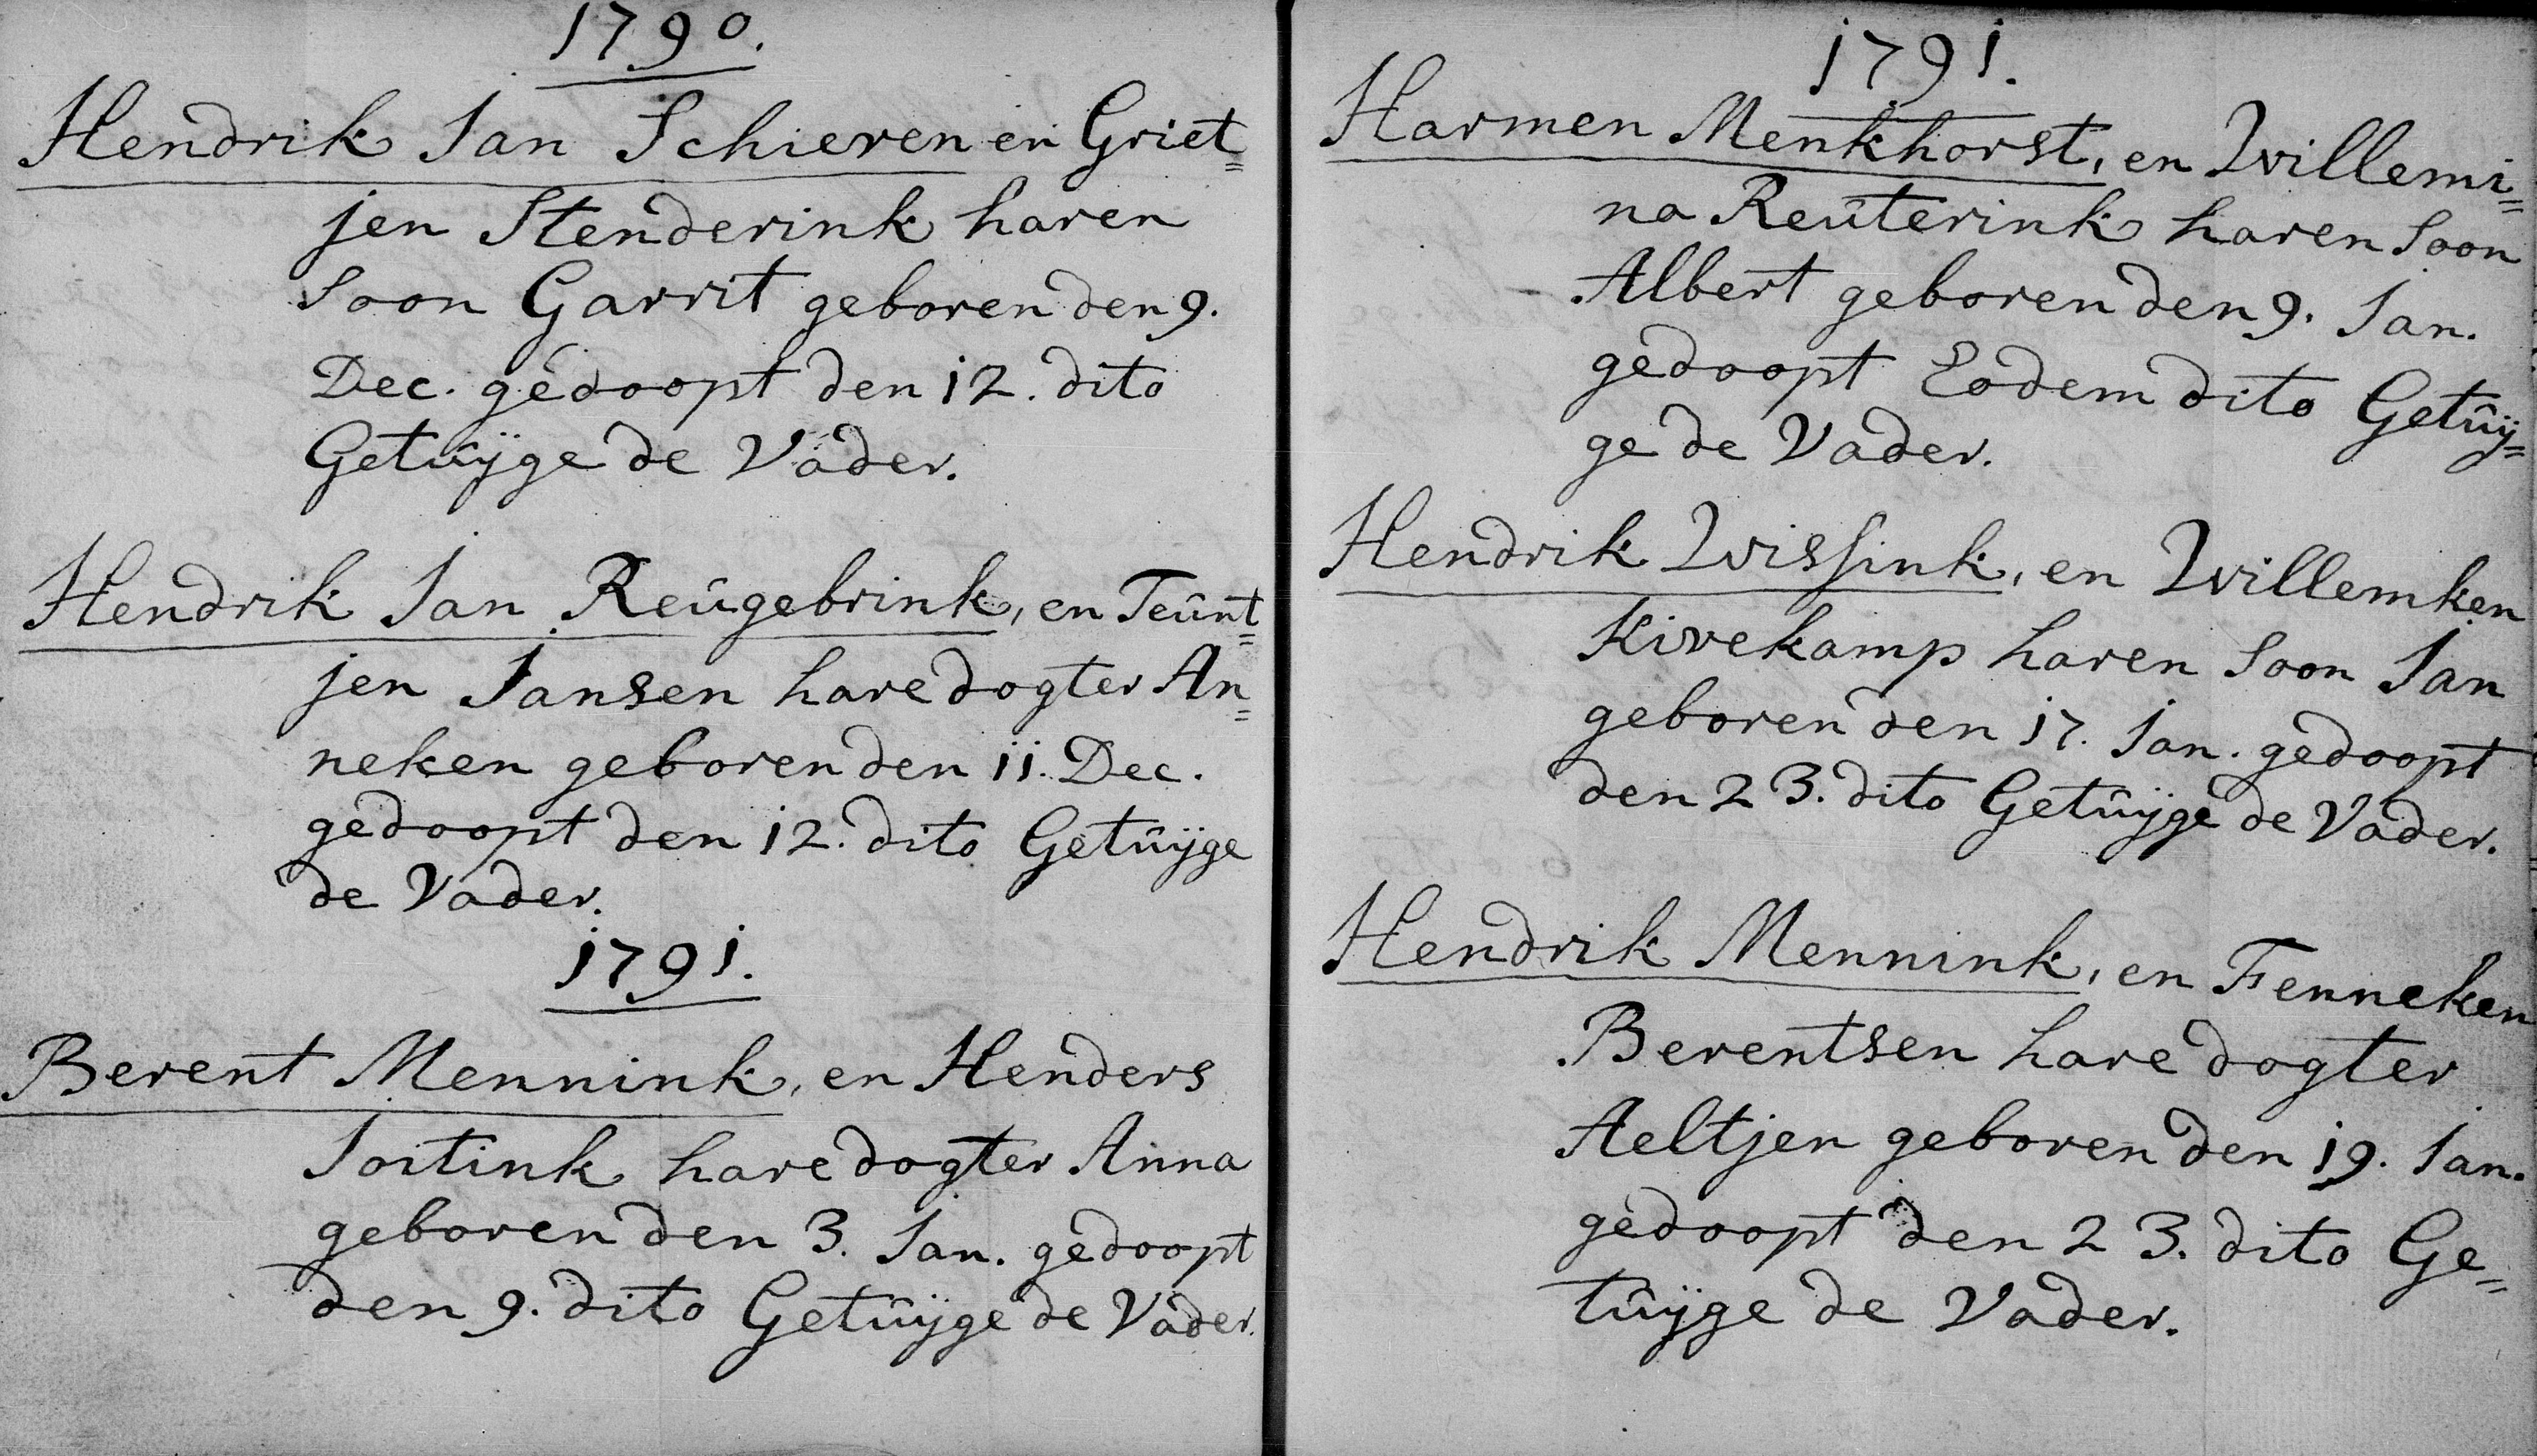 1790.
Hendrik Jan Schieven en Griet=
jen Stenderink haren
Soon Garrit geboren den 9.
Dec. gedoopt den 12. dito
Getûÿge de Vader.
Hendrik Jan Reûgebrink, en Teûnt=
jen Jansen hare dogter An=
neken geboren den 11. Dec.
gedoopt den 12. dito Getûÿge
de Vader.
1791.
Berent Mennink, en Henders
Joitink hare dogter Anna
geboren den 3. Jan. gedoopt
den 9. dito Getûÿge de Vader.
1791.
Harmen Menkhorst, en Willemi=
na Reûterink haren Soon
Albert geboren den 9. Jan.
gedoopt Eodem dito Getûÿ=
ge de Vader.
Hendrik Wissink, en Willemken
Kivekamp haren Soon Jan
geboren den 17. Jan. gedoopt
den 23. dito Getûÿge de Vader.
Hendrik Mennink, en Fenneken
Berentsen hare dogter
Aeltjen geboren den 19. Jan.
gedoopt den 23. dito Ge=
tûÿge de Vader.